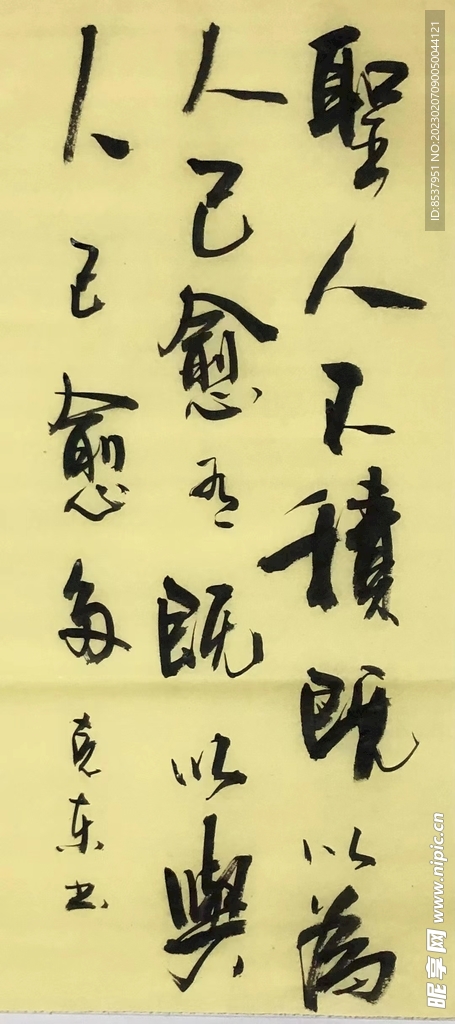 聖人不積既以為
人己愈有既以與
人己愈多 克東书
ID:8537951 NO:20230207090050044121
昵享网 www.nipic.cn